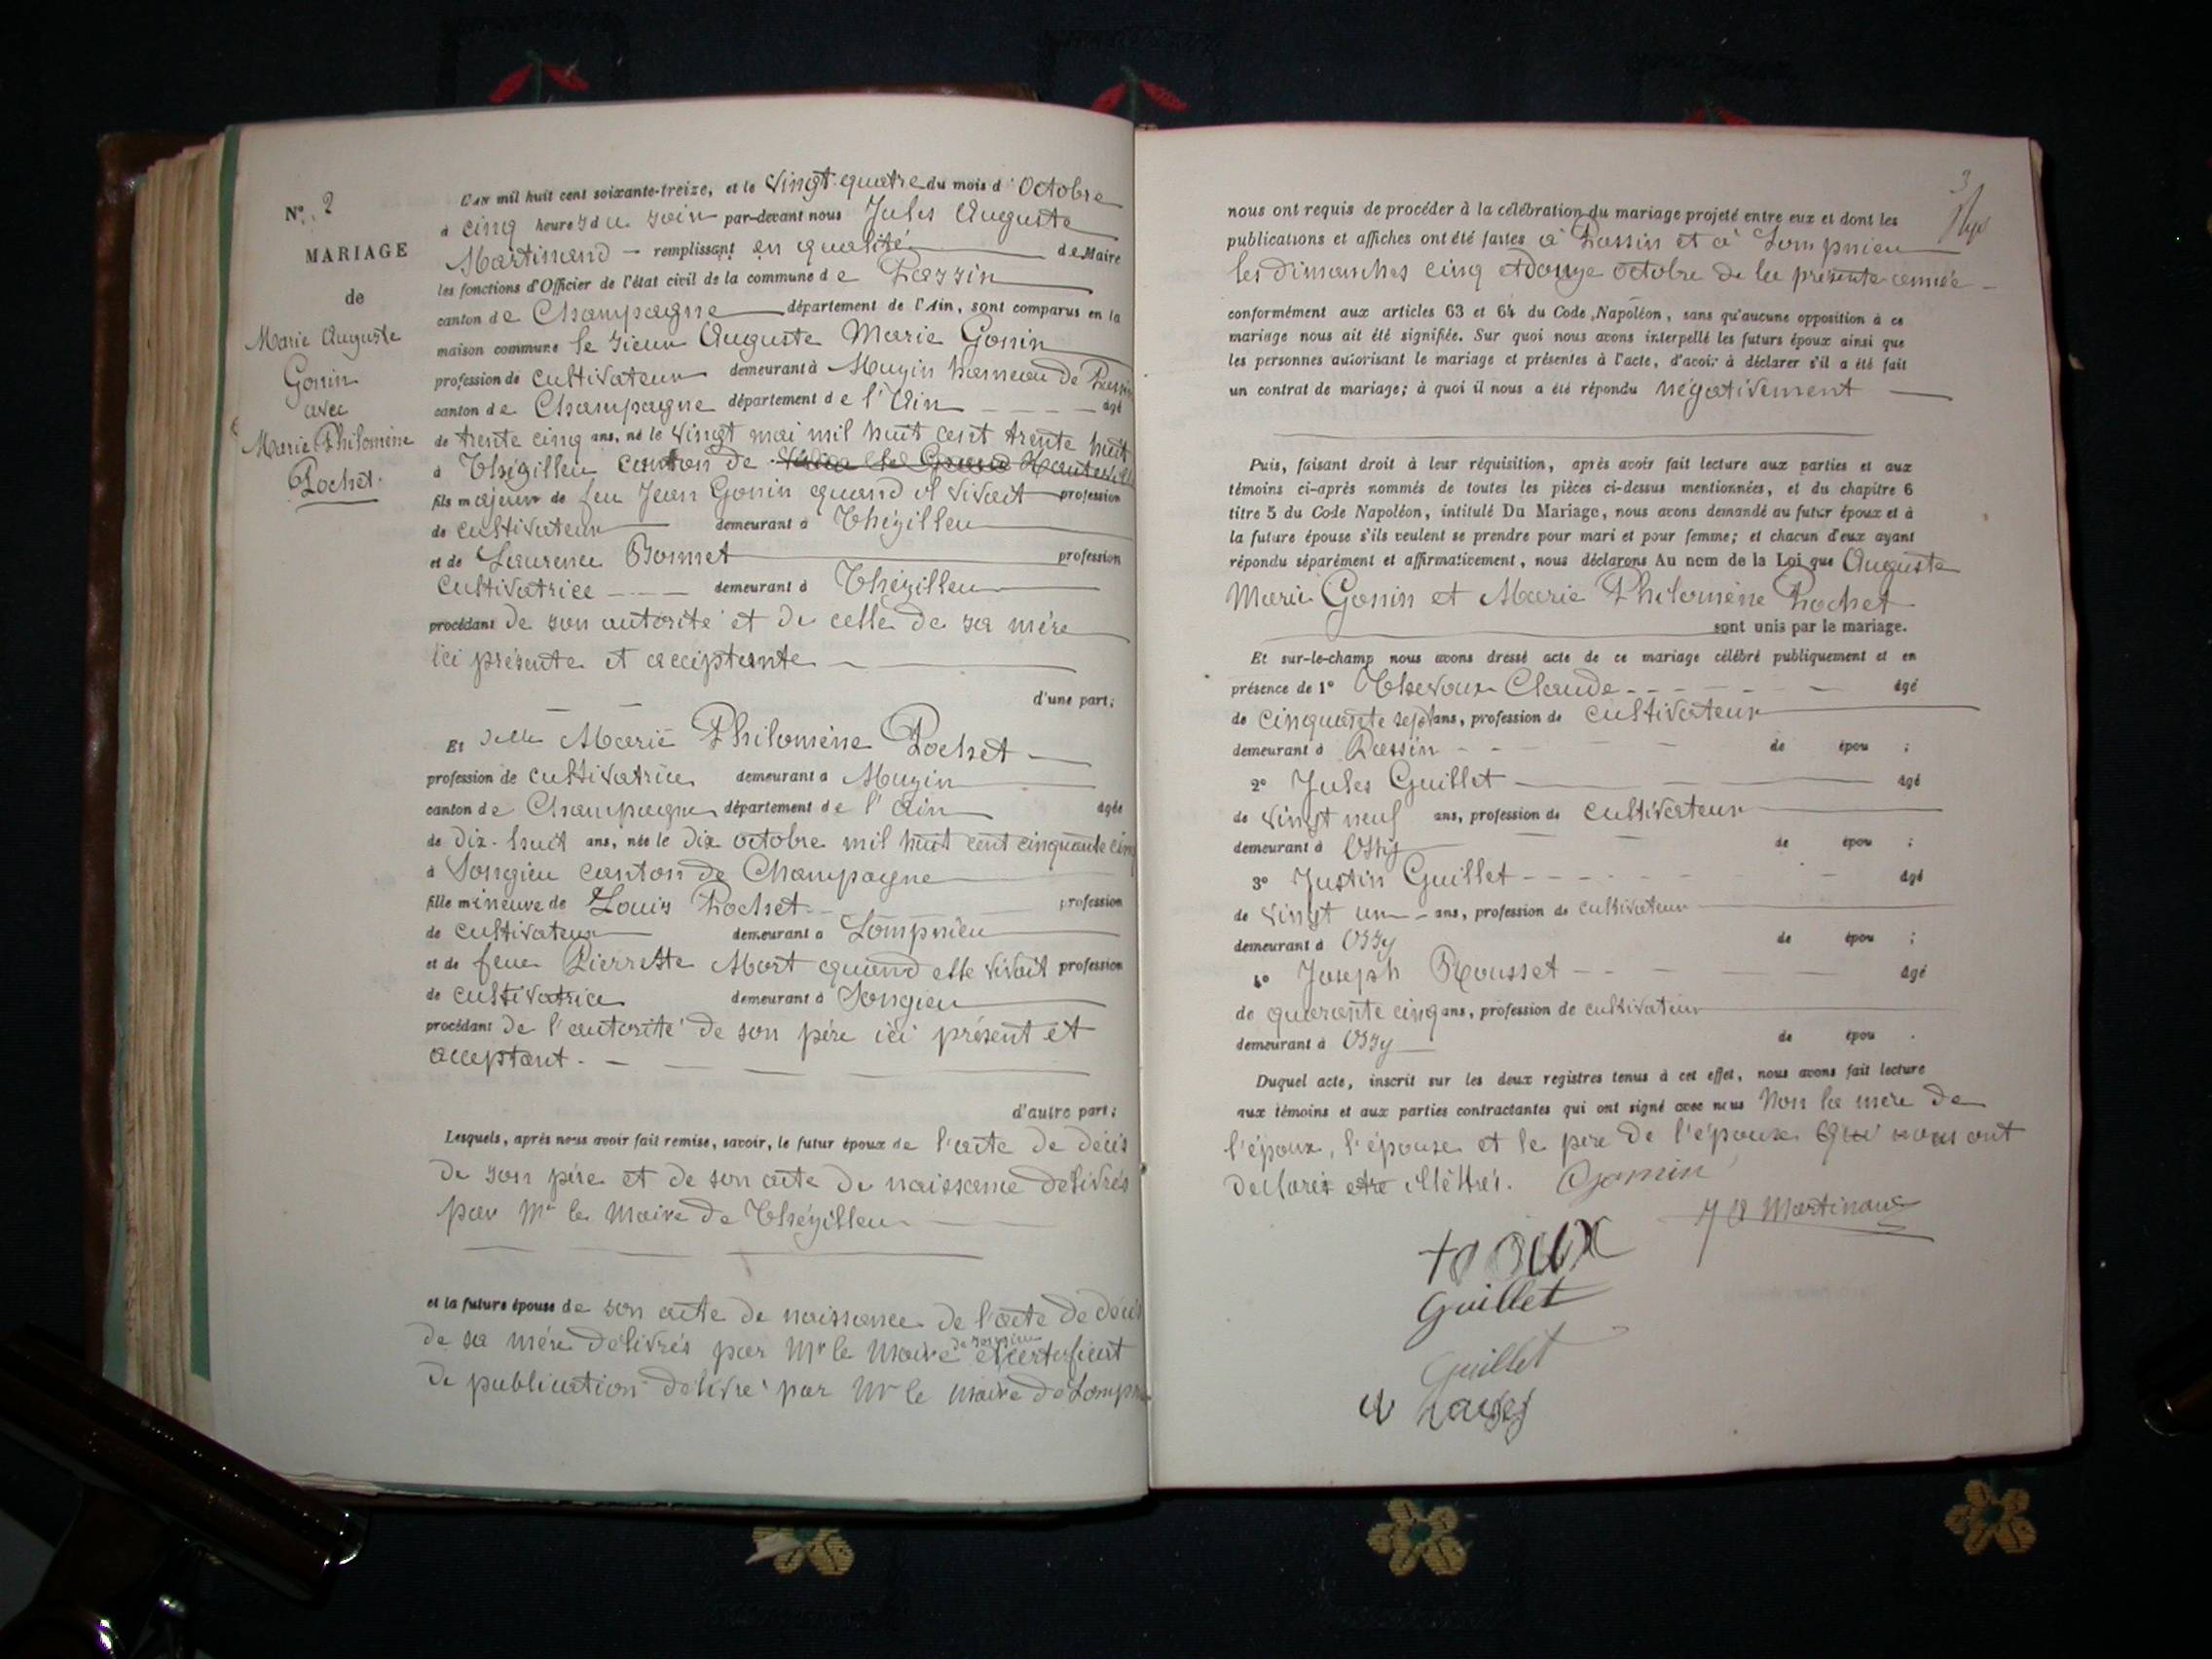 N° 2
MARIAGE
de
Marie Auguste
Gonin
avec
Marie Philomène
Pochet.
L'an mil huit cent soixante-treize, et le vingt-quatre du mois d'Octobre
à cinq heures du soir par-devant nous Jules Auguste
Martinand — remplissant en qualité de Maire
les fonctions d'Officier de l'état civil de la commune de Passin
canton de Champagne département de l'Ain, sont comparus en la
maison commune le sieur Auguste Marie Gonin
profession de cultivateur demeurant à Muzin hameau de Passin
canton de Champagne département de l'Ain âgé
de trente cinq ans, né le vingt mai mil huit cent trente huit
à Thézillieu canton de
fils majeur de feu Jean Gonin quand il vivait profession
de cultivateur demeurant à Thézillieu
et de Laurence Bonnet profession
cultivatrice demeurant à Thézillieu
procédant de son autorité et de celle de sa mère
ici présente et acceptante
d'une part;
Et delle Marie Philomène Pochet
profession de cultivatrice demeurant à Muzin
canton de Champagne département de l'Ain âgée
de dix-huit ans, née le dix octobre mil huit cent cinquante cinq
à Songieu canton de Champagne
fille mineure de Louis Pochet profession
de cultivateur demeurant à Lompnieu
et de feue Pierrette Mort quand elle vivait profession
de cultivatrice demeurant à Songieu
procédant de l'autorité de son père ici présent et
acceptant.
d'autre part;
Lesquels, après nous avoir fait remise, savoir, le futur époux de l'acte de décès
de son père et de son acte de naissance délivrés
par Mr le Maire de Thézillieu
et la future épouse de son acte de naissance de l'acte de décès
de sa mère délivrés par Mr le Maire de Songieu et certificat
de publication délivré par Mr le maire de Lompn
3
nous ont requis de procéder à la célébration du mariage projeté entre eux et dont les
publications et affiches ont été faites à Passin et à Lompnieu
les dimanches cinq et douze octobre de la présente année
conformément aux articles 63 et 64 du Code Napoléon, sans qu'aucune opposition à ce
mariage nous ait été signifiée. Sur quoi nous avons interpellé les futurs époux ainsi que
les personnes autorisant le mariage et présentes à l'acte, d'avoir à déclarer s'il a été fait
un contrat de mariage; à quoi il nous a été répondu négativement
Puis, faisant droit à leur réquisition, après avoir fait lecture aux parties et aux
témoins ci-après nommés de toutes les pièces ci-dessus mentionnées, et du chapitre 6
titre 5 du Code Napoléon, intitulé Du Mariage, nous avons demandé au futur époux et à
la future épouse s'ils veulent se prendre pour mari et pour femme; et chacun d'eux ayant
répondu séparément et affirmativement, nous déclarons Au nom de la Loi que Auguste
Marie Gonin et Marie Philomène Pochet
sont unis par le mariage.
Et sur-le-champ nous avons dressé acte de ce mariage célébré publiquement et en
présence de 1° Thevoux Claude âgé
de cinquante sept ans, profession de cultivateur
demeurant à Passin de épou ;
2° Jules Guillet âgé
de vingt neuf ans, profession de cultivateur
demeurant à Ossy de épou ;
3° Justin Guillet âgé
de vingt un ans, profession de cultivateur
demeurant à Ossy de épou ;
4° Joseph Rousset âgé
de quarante cinq ans, profession de cultivateur
demeurant à Ossy de épou .
Duquel acte, inscrit sur les deux registres tenus à cet effet, nous avons fait lecture
aux témoins et aux parties contractantes qui ont signé avec nous Non la mère de
l'époux, l'épouse et le père de l'épouse qui nous ont
declarés etre illéttrés. Gonnin
J A Martinand
Guillet
Guillet